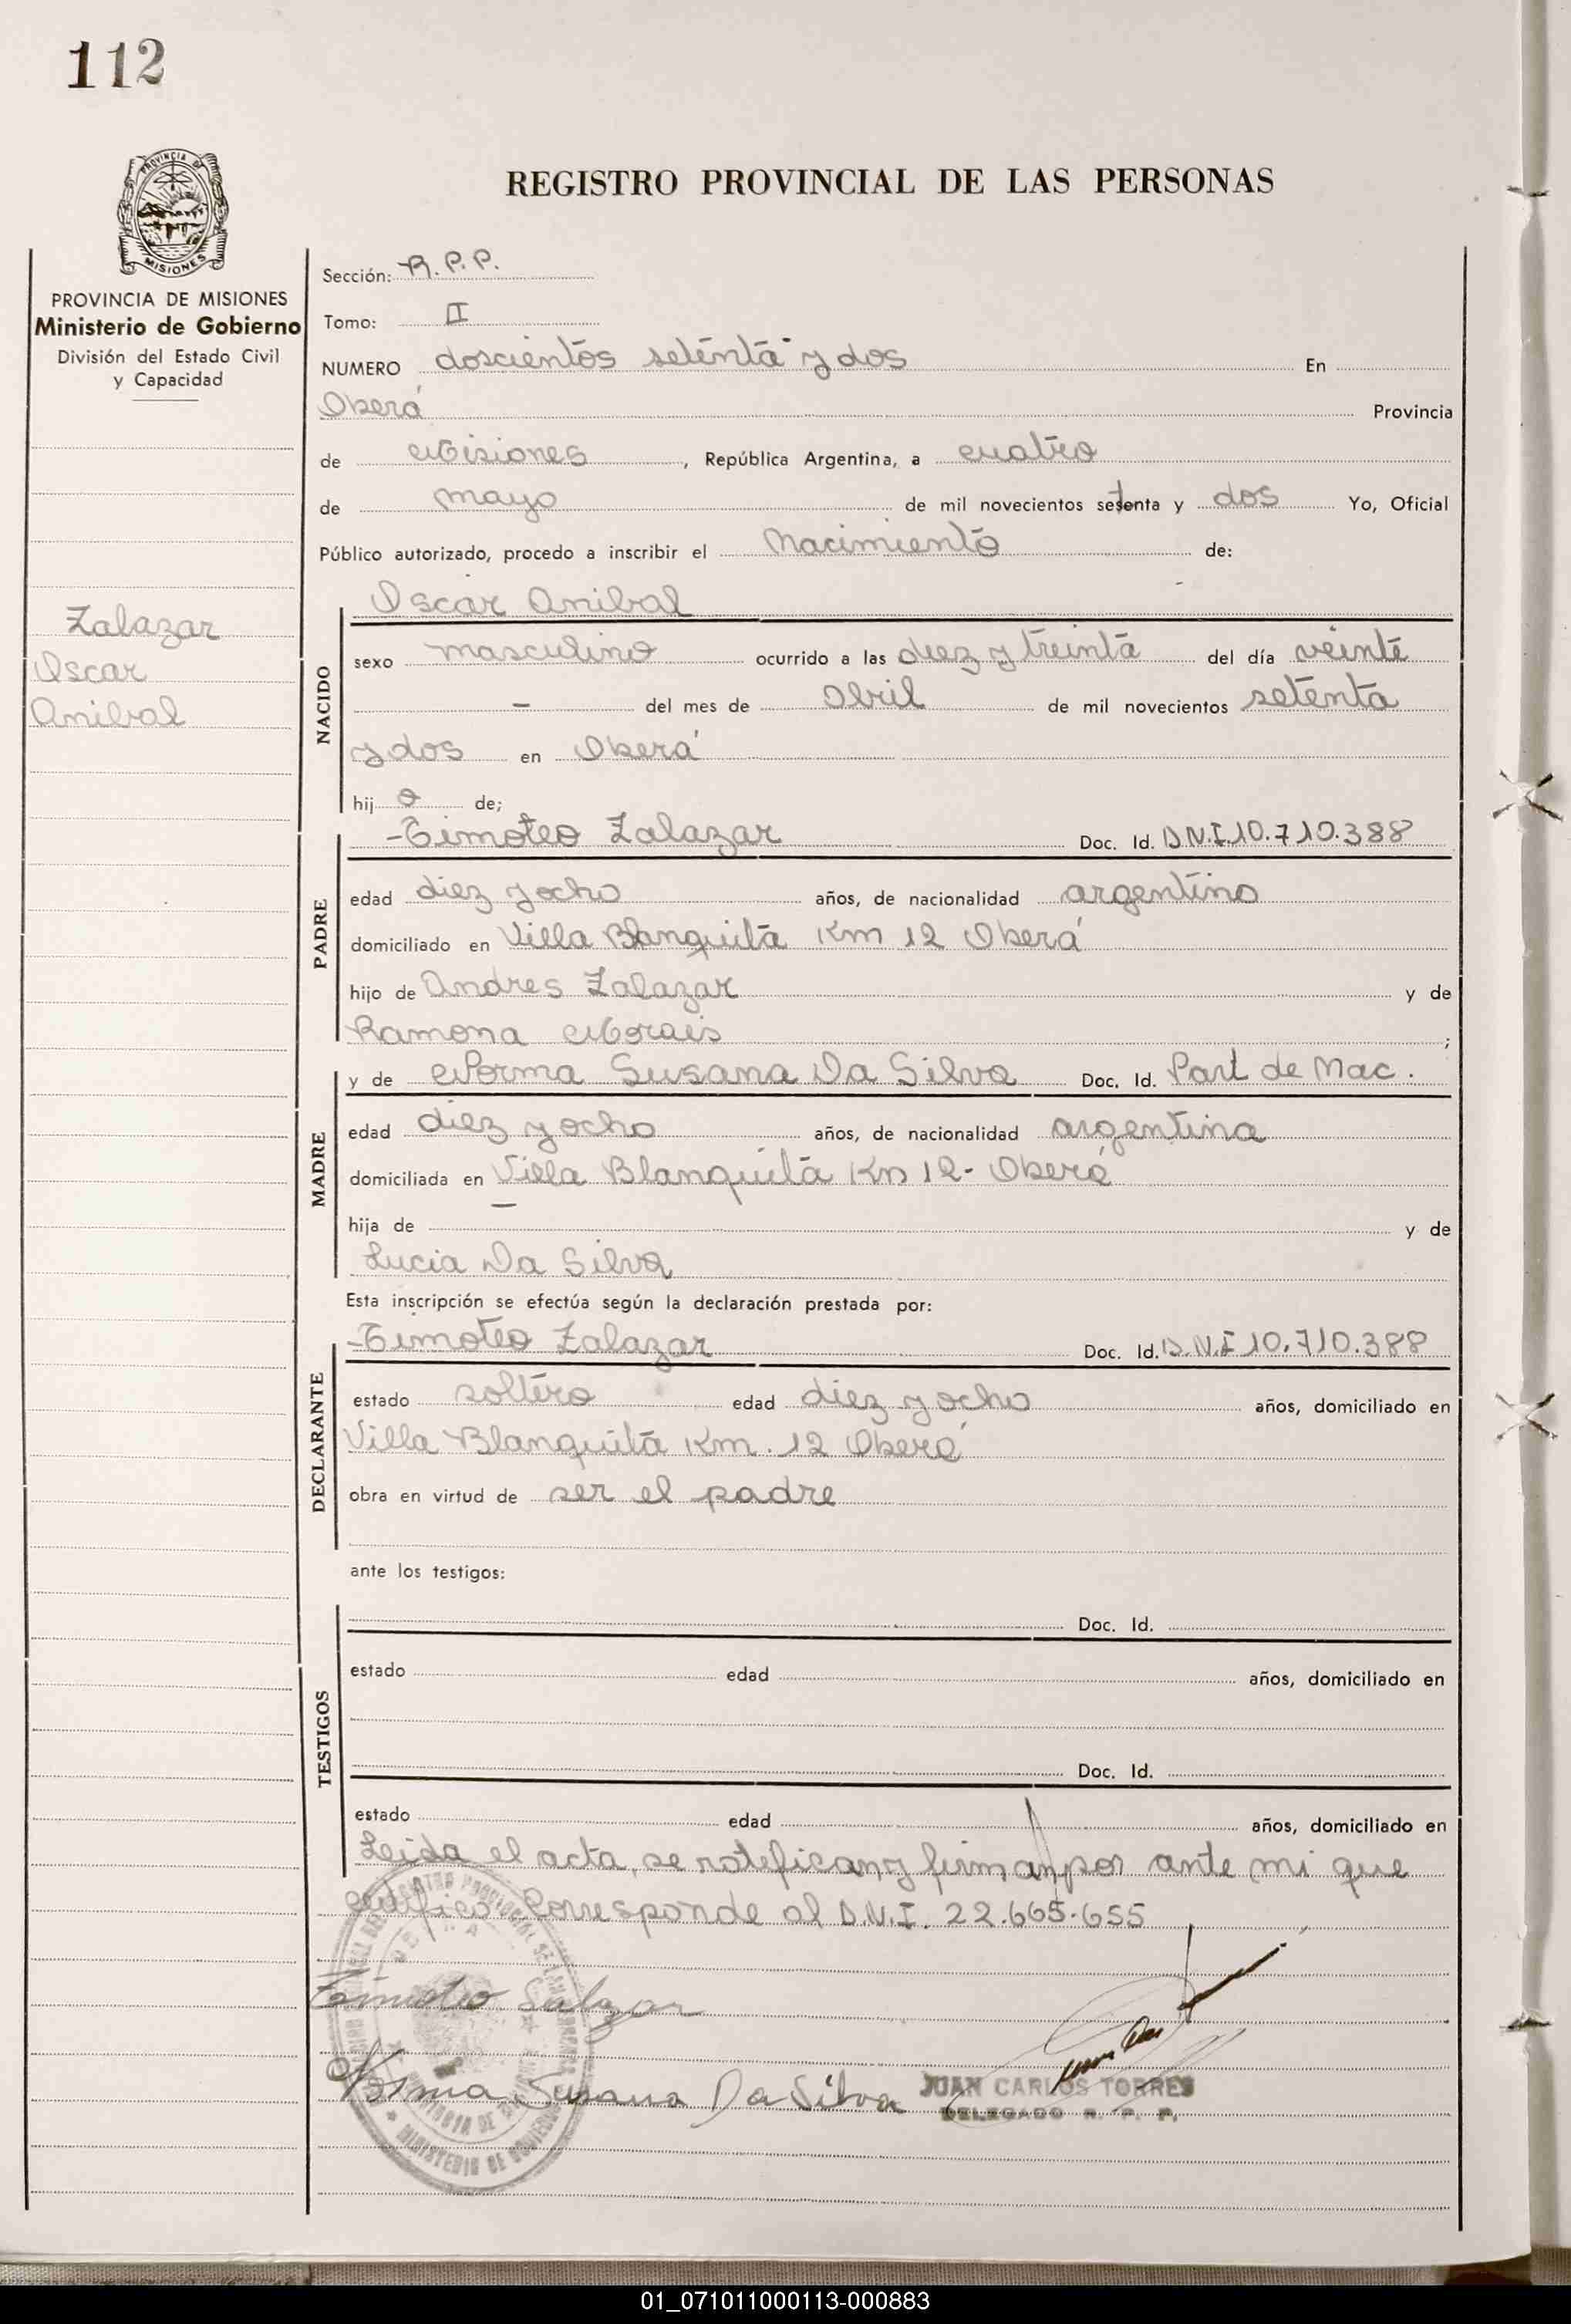 112
PROVINCIA DE
MISIONES
REGISTRO PROVINCIAL DE LAS PERSONAS
PROVINCIA DE MISIONES
Ministerio de Gobierno
División del Estado Civil
y Capacidad
Zalazar
Oscar
Anibal
Sección: R.P.P.
Tomo: II
NUMERO doscientos setenta y dos En
Oberá Provincia
de Misiones, República Argentina, a cuatro
de mayo de mil novecientos setenta y dos Yo, Oficial
Público autorizado, procedo a inscribir el Nacimiento de:
NACIDO
Oscar Anibal
sexo masculino ocurrido a las diez y treinta del día veinte
- del mes de Abril de mil novecientos setenta
y dos en Oberá
hijo de;
PADRE
Timoteo Zalazar Doc. Id. D.N.I. 10.710.388
edad diez y ocho años, de nacionalidad argentino
domiciliado en Villa Blanquita Km 12 Oberá
hijo de Andres Zalazar y de
Ramona Morais ;
MADRE
y de Norma Susana Da Silva Doc. Id. Part de Nac.
edad diez y ocho años, de nacionalidad argentina
domiciliada en Villa Blanquita Km 12- Oberá
hija de — y de
Lucia Da Silva
Esta inscripción se efectúa según la declaración prestada por:
DECLARANTE
Timoteo Zalazar Doc. Id. D.N.I 10.710.388
estado soltero edad diez y ocho años, domiciliado en
Villa Blanquita Km. 12 Oberá
obra en virtud de ser el padre
ante los testigos:
TESTIGOS
Doc. Id.
estado edad años, domiciliado en
Doc. Id.
estado edad años, domiciliado en
Leida el acta, se ratifican y firman por ante mi que
certifico. Corresponde al D.N.I. 22.665.655
Timoteo Salazar
Norma Susana Da Silva
JUAN CARLOS TORRES
DELEGADO R. P. P.
MINISTERIO DE GOBIERNO
01_071011000113-000883